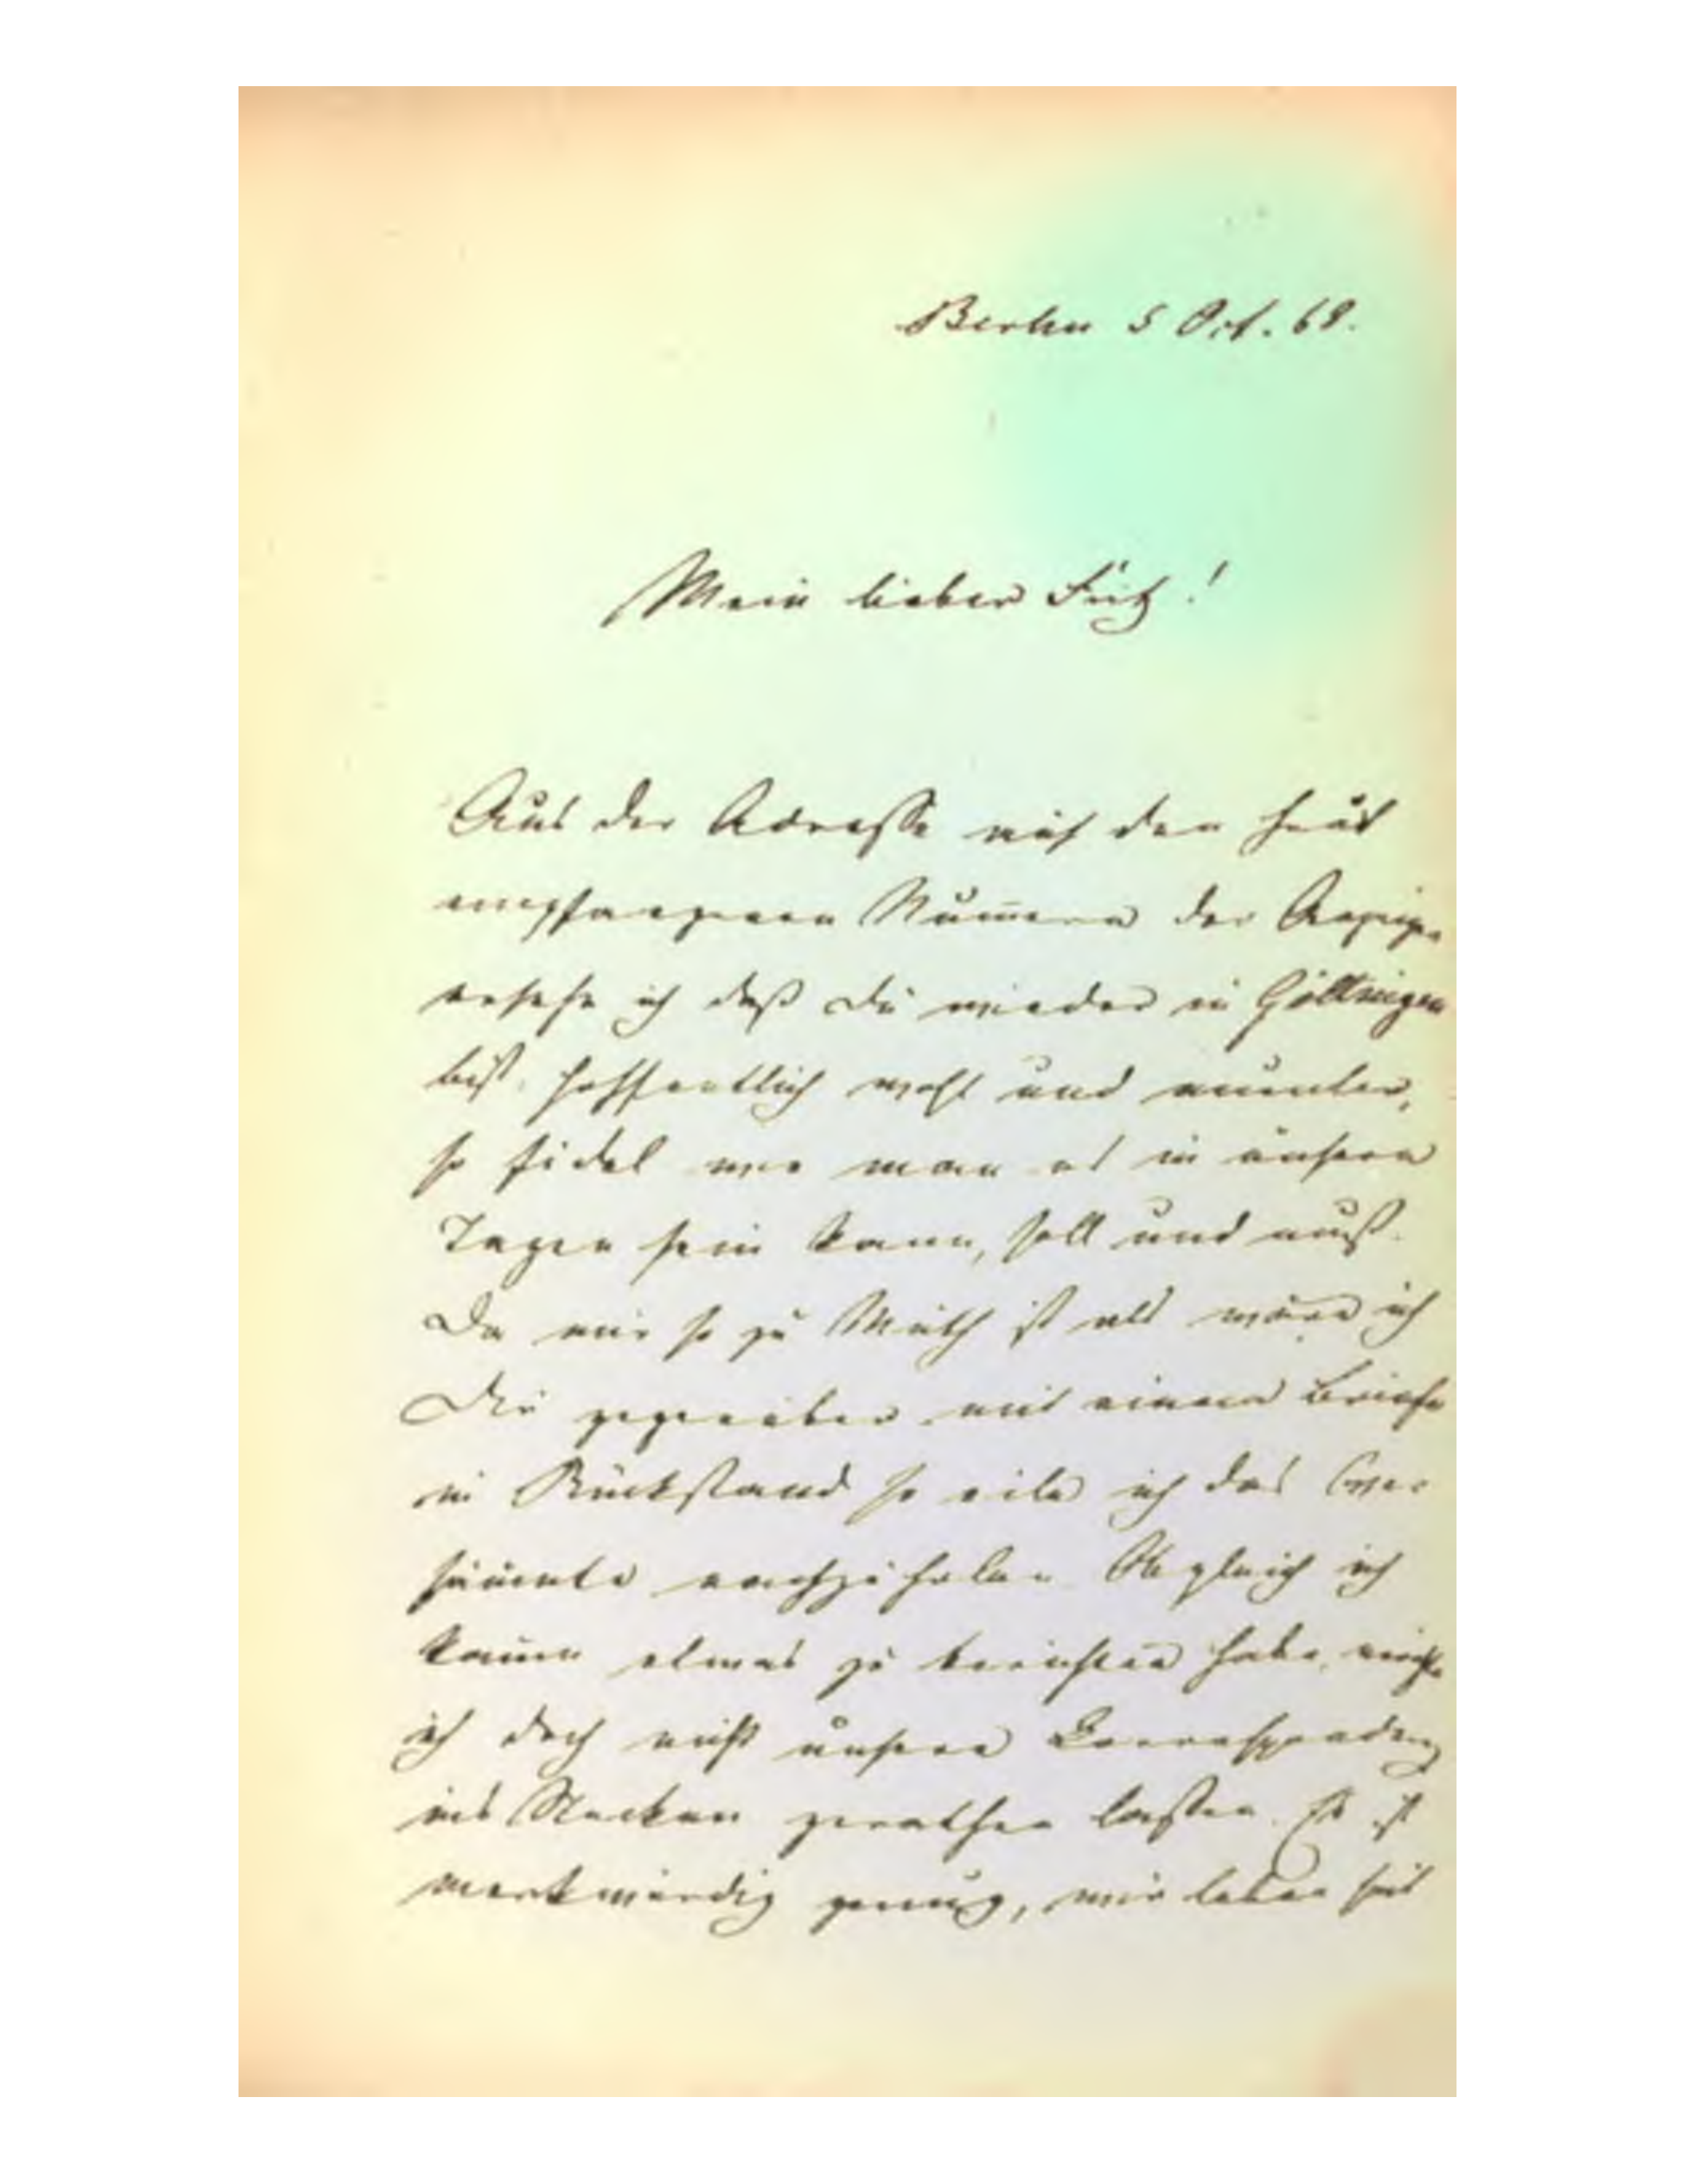 Berlin 5 Oct. 68.
Mein lieber Fritz!
Aus der Adresse auf den heut
empfangenen Nummern der Anzeigen
ersehe ich daß Du wieder in Göttingen
bist, hoffentlich wohl und munter,
so fidel wie man es in unsern
Tagen sein kann, soll und muß.
Da mir so zu Muth ist als wäre ich
Dir gegenüber mit einem Briefe
in Rückstand so eile ich das Ver-
säumte nachzuholen. Obgleich ich
kaum etwas zu berichten habe, möchte
ich doch nicht unsere Correspondenz
ins Stocken gerathen lassen. Es ist
merkwürdig genug, wir leben seit